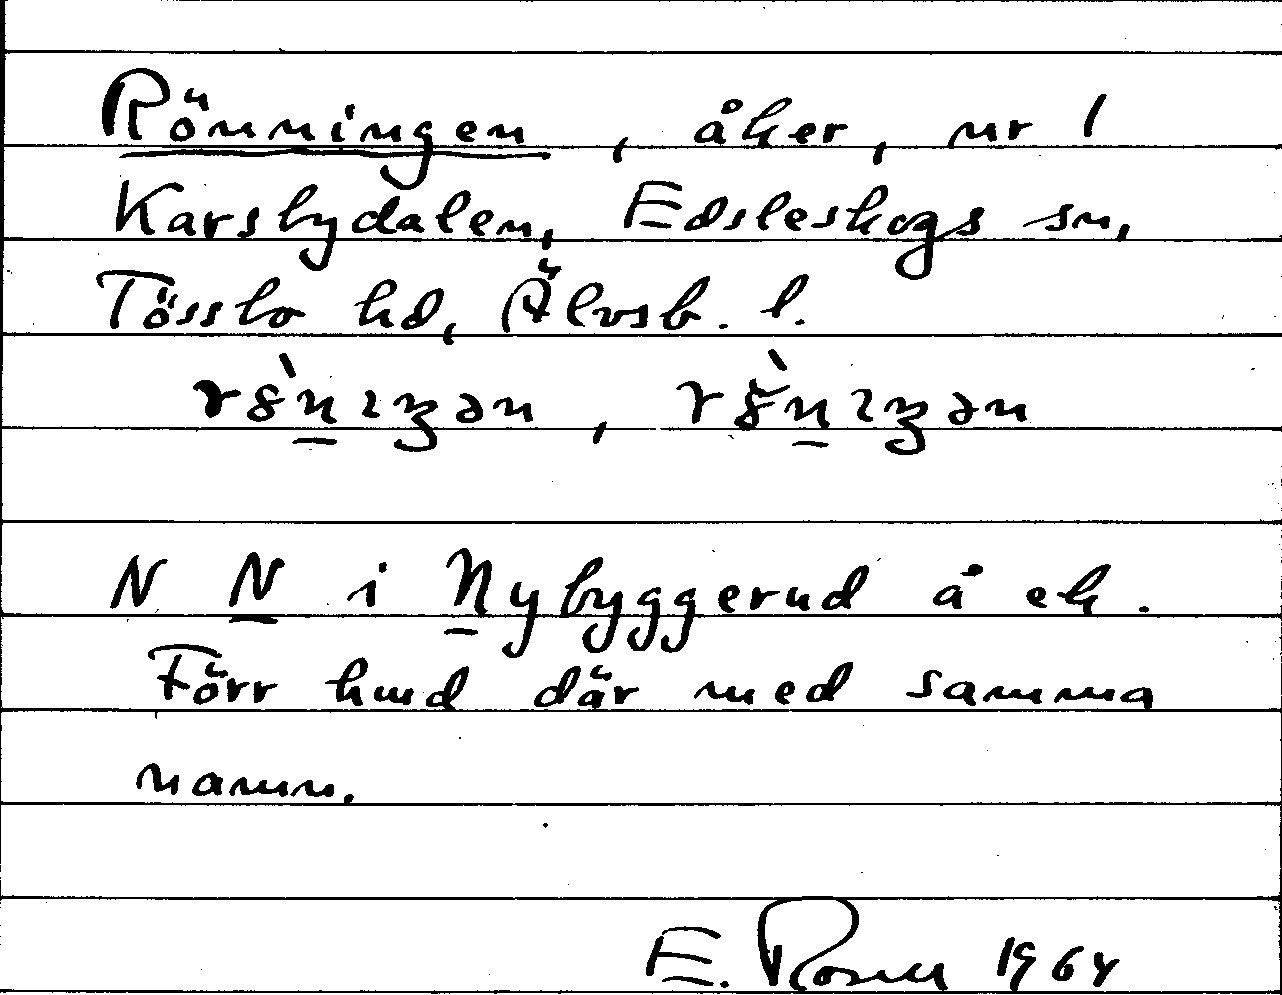 Rönningen, åker, nr 1
Karsbydalen, Edsleskogs sn,
Tössbo hd, Älvsb. l.
N N i Nybyggerud å ek.
Förr hmd där med samma
namn.
E. Rosell 1964